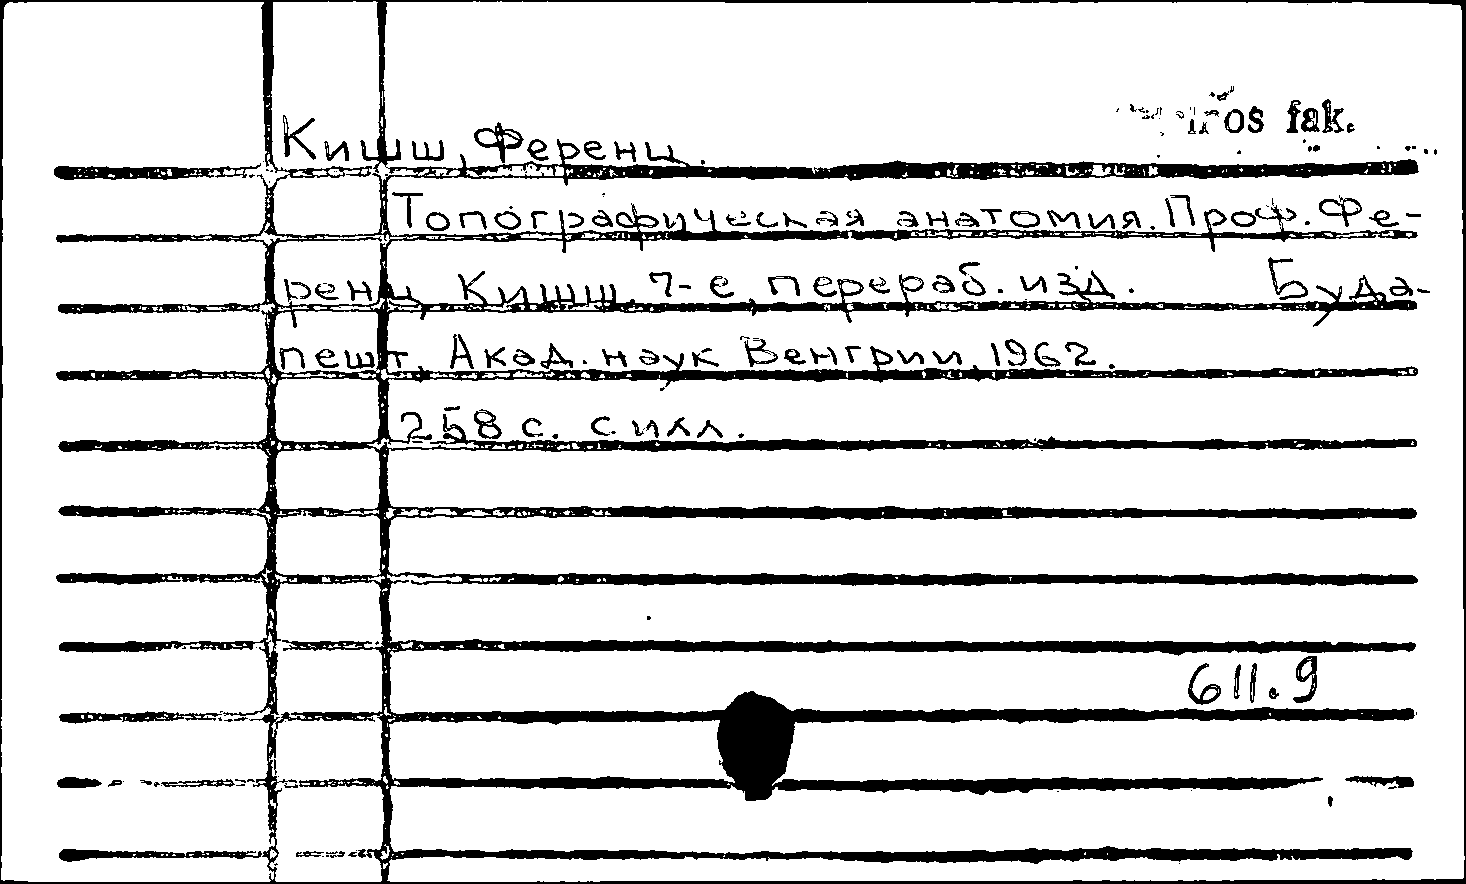 fak.
Кишш, Ференц.
Топографическая анатомия. Проф. Фе-
ренц Кишш. 7-е, перераб. изд. Буда-
пешт, Акад. наук Венгрии, 1962.
258 с. с илл.
611.9